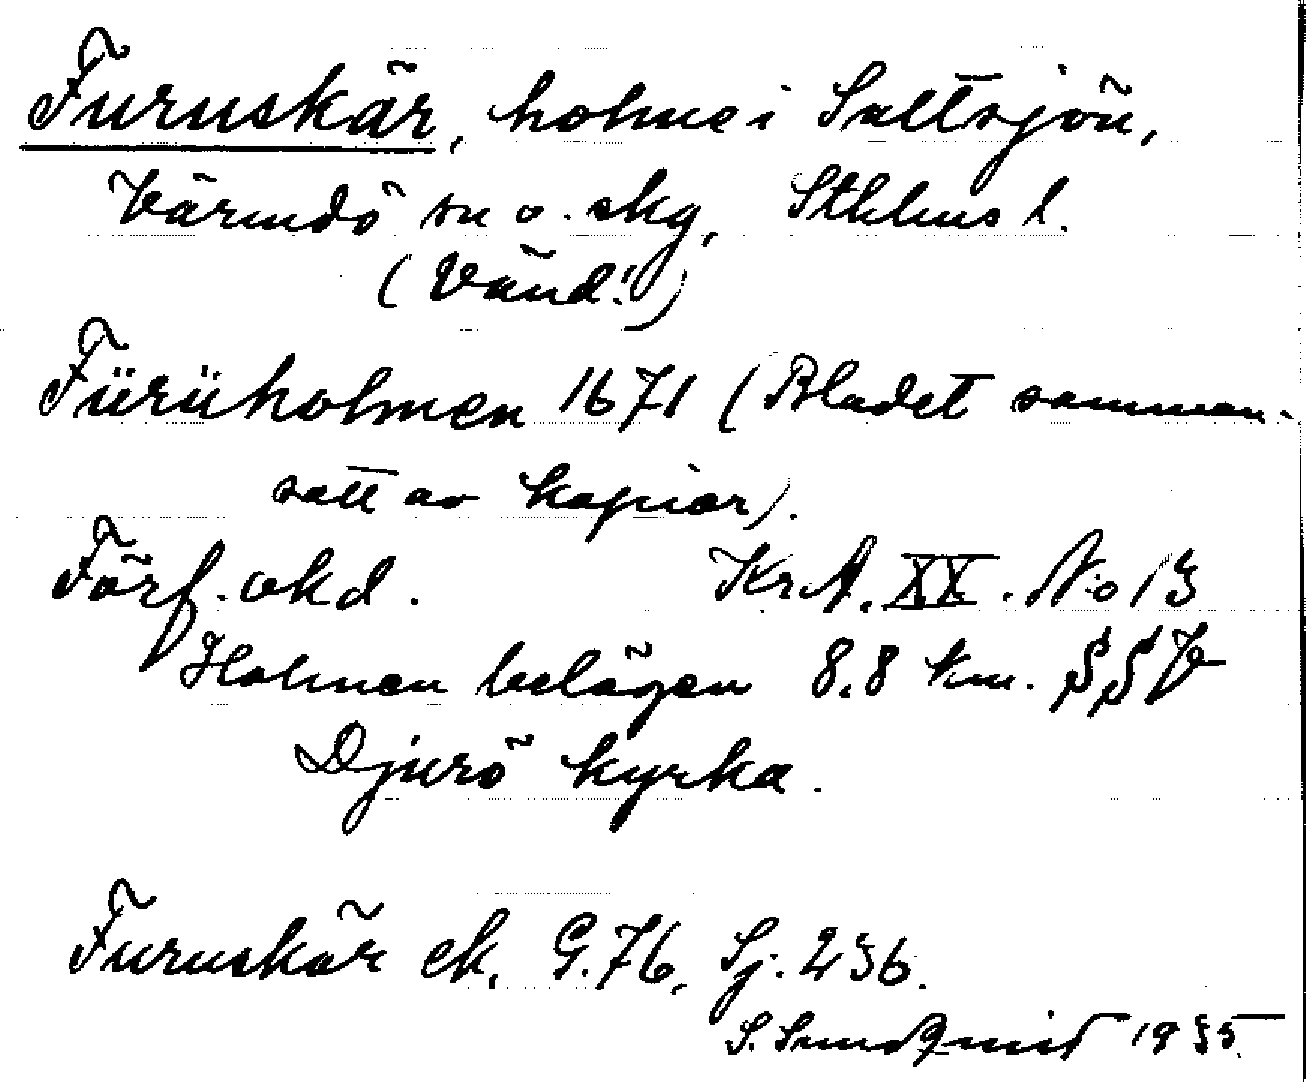 Furuskär, holme i Saltsjön,
Värmdö sn o. skg, Sthlms l.
(Vänd!)
Fürüholmen 1671 (Bladet samman-
satt av kopior).
Förf. okd. KrA. XX. No 13
Holmen belägen 8.8 km. SSV
Djurö kyrka.
Furuskär ek. G. 76, Sj. 236.
S. Sundqvist 1935